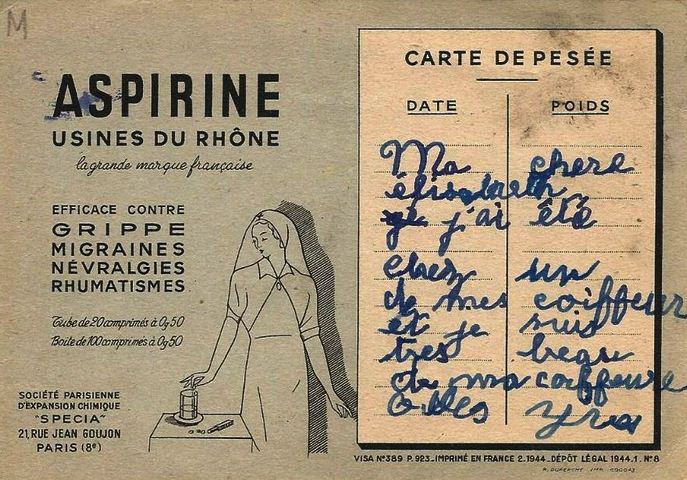 M
ASPIRINE
USINES DU RHÔNE
la grande marque française
EFFICACE CONTRE
GRIPPE
MIGRAINES
NÉVRALGIES
RHUMATISMES
Tube de 20 comprimés à 0g50
Boite de 100 comprimés à 0g50
SOCIÉTÉ PARISIENNE
D'EXPANSION CHIMIQUE
"SPECIA"
21, RUE JEAN GOUJON
PARIS (8e)
CARTE DE PESÉE
DATE POIDS
Ma chere
élisabeth
j'ai été
chez un
de mes coiffeur
et je suis
tres beau
de ma coiffeure
VISA N°389 P.923_IMPRIMÉ EN FRANCE 2.1944_DÉPÔT LÉGAL 1944.1. N°8